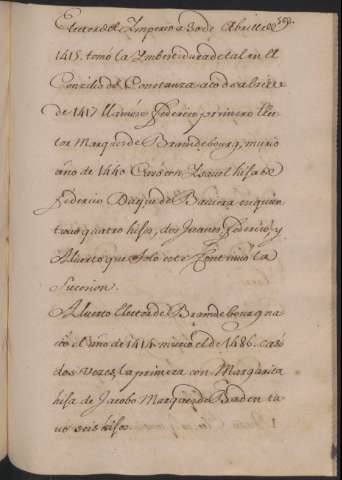 Elector del Imperio a 30 de Abril de
1415. tomó la Imbestidura de tal en el
Concilio de Constanza a 00 de abril
de 1417 llamóse Federico primero Elec-
tor Marques de Brandebourg, murio
año de 1440 Casó con Ysauel hija de
Federico Duque de Bauiera en quien
tuuo quatro hijos, dos Juanes, Federico, y
Alberto que solo este Continuó la
Sucesion.
Alberto Elector de Brandebourg na-
cio el año de 1414 murio el de 1486. casó
dos vezes, la primera con Margarita
hija de Jacobo Marques de Baden tu-
uo seis hijos.